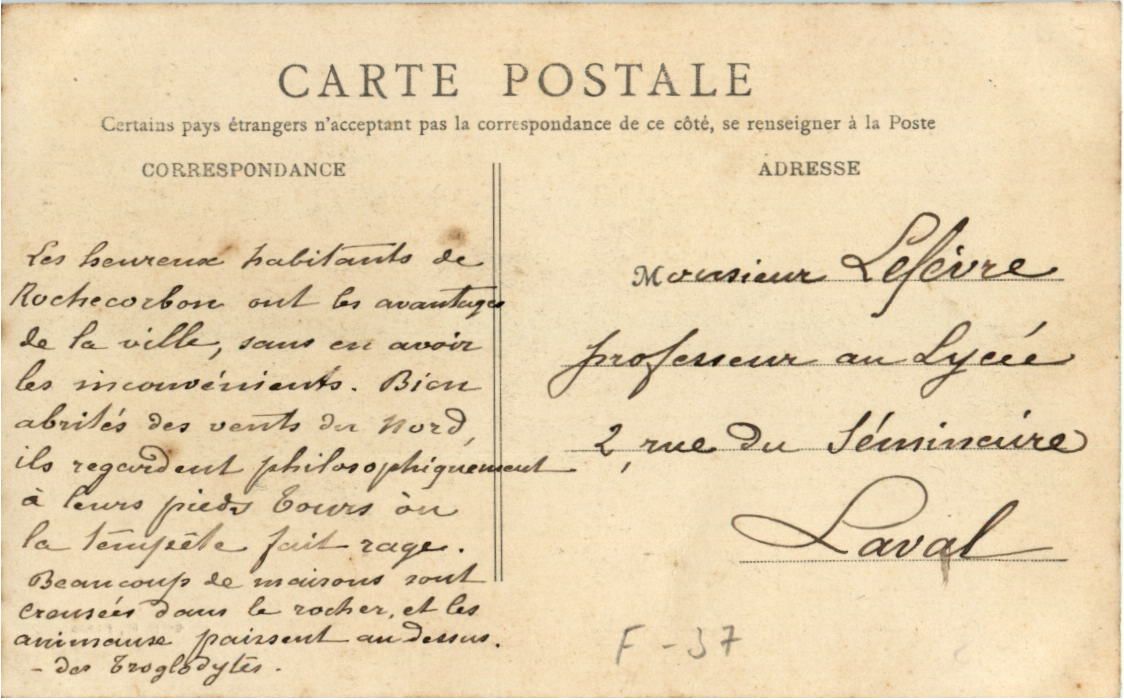 CARTE POSTALE
Certains pays étrangers n'acceptant pas la correspondance de ce côté, se renseigner à la Poste
CORRESPONDANCE
Les heureux habitants de
Rochecorbon ont les avantages
de la ville, sans en avoir
les inconvénients. Bien
abrités des vents du Nord,
ils regardent philosophiquement
à leurs pieds Tours où
la tempête fait rage.
Beaucoup de maisons sont
creusées dans le rocher, et les
animaux paissent au dessus.
- des Troglodytes.
ADRESSE
Monsieur Lefèvre
professeur au Lycée
2, rue du Séminaire
Laval
F - 37